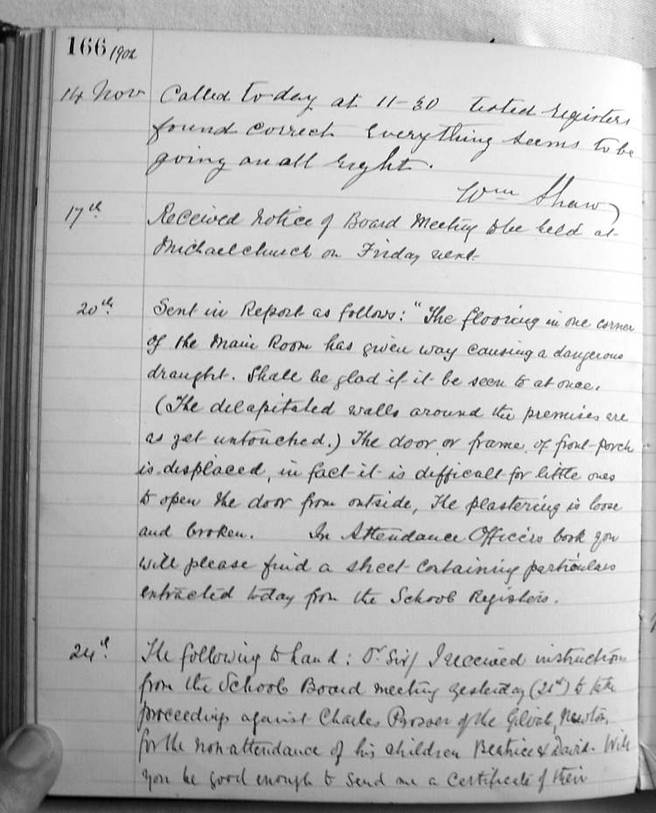 166 1902
14 Nov Called today at 11-30 tested registers
found correct Everything seems to be
going on all right.
Wm Shaw
17th Received notice of Board Meeting to be held at
Michaelchurch on Friday next
20th. Sent in Report as follows: "The flooring in one corner
of the Main Room has given way causing a dangerous
draught. Shall be glad if it be seen to at once.
(The delapitated walls around the premises are
as yet untouched.) The door or frame of front-porch
is displaced, in fact it is difficult for little ones
to open the door from outside, The plastering is loose
and broken. In Attendance Officers book you
will please find a sheet containing particulars
extracted today from the School Registers.
24th. The following to hand: Dr Sir/ I received instructions
from the School Board meeting yesterday (21st) to take
proceedings against Charles Prosser of the Newton
for the non attendance of his children Beatrice & David. Will
you be good enough to send me a Certificate of their